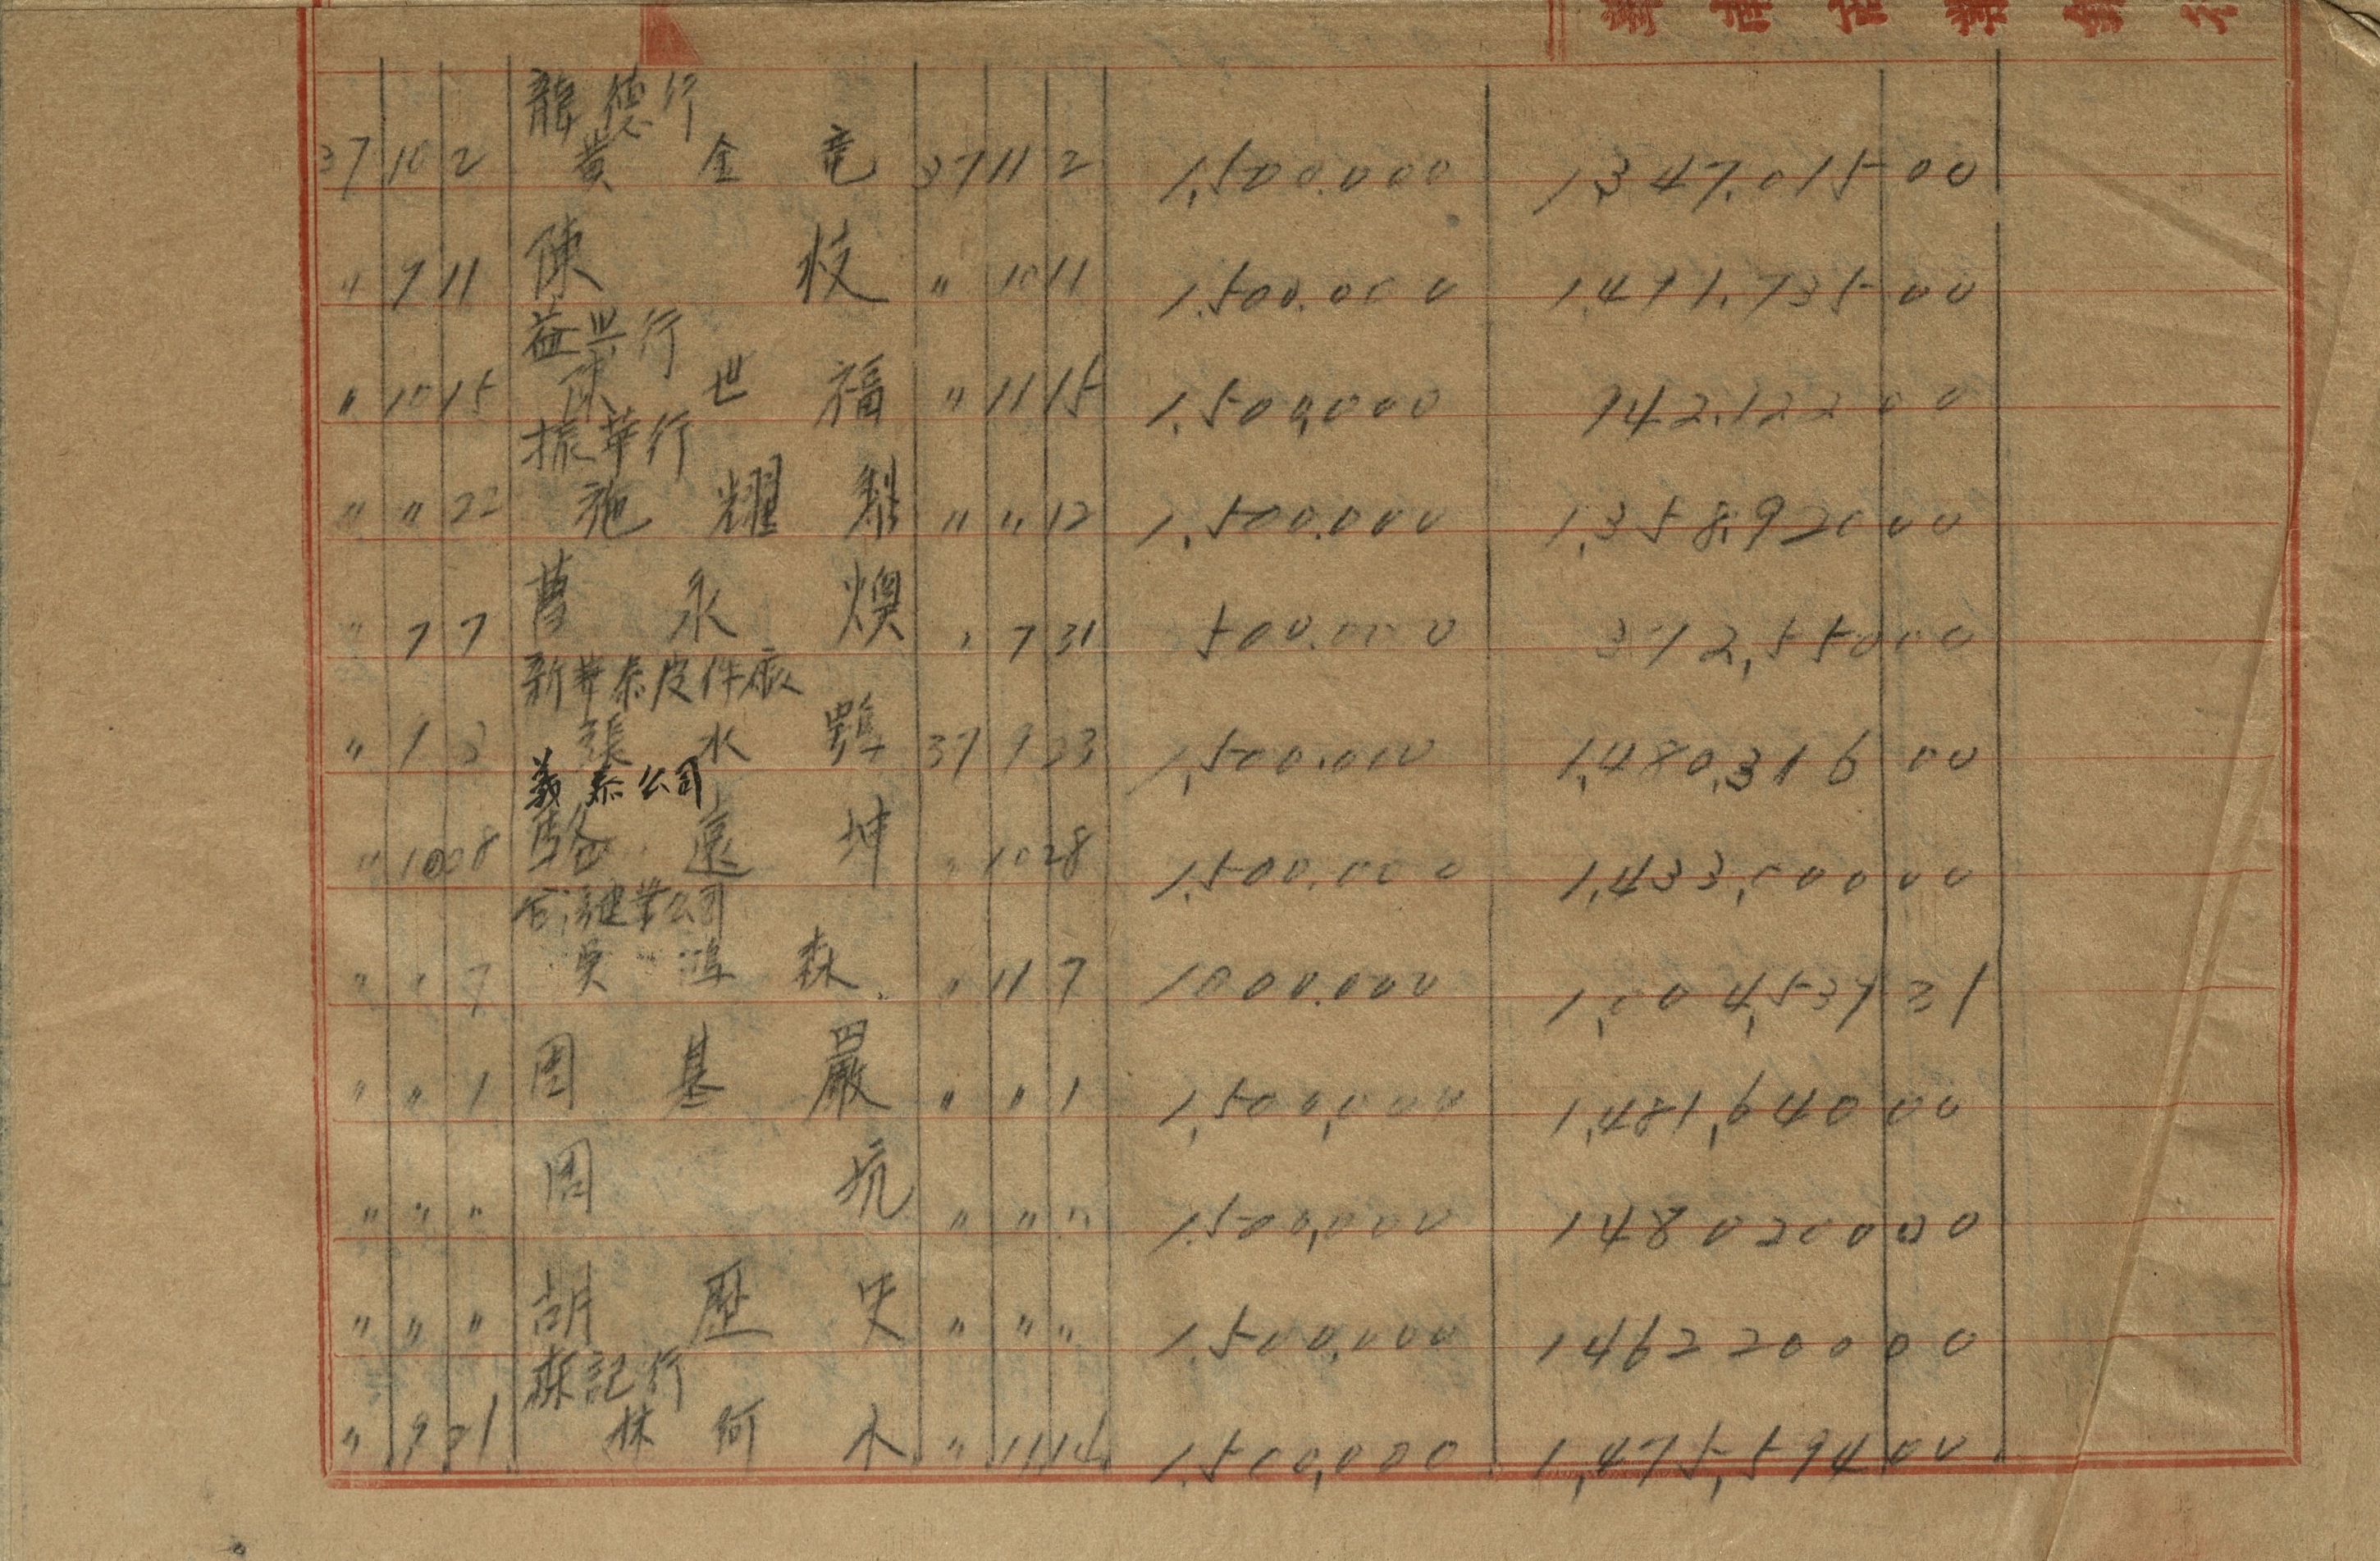 龍德行
37 10 2 黃金竜 37 11 2 1,500.000 1,347.015 00
〃 9 11 陳枝 〃 10 11 1.500.000 1,471.735 00
益興行
〃 10 15 陳世福 〃 11 15 1,500,000 742.122 00
振華行
〃 〃 22 施耀 〃 〃 12 1,500.000 1,358,920 00
〃 7 7 曹永煥 〃 7 31 500.000 312,550 00
新華泰皮件廠
〃 9 3 張水 37 9 23 1,500.000 1,480,316 00
義泰公司
〃 10 8 駱遠坤 〃 10 28 1,500.000 1,433,000 00
〃 〃 7 吳鴻森 〃 11 7 1000.000 1,004,537 21
〃 〃 1 周基嚴 〃 〃 1 1,500,000 1,481,640 00
〃 〃 〃 周坑 〃 〃 〃 1.500,000 1480200 00
〃 〃 〃 胡歷史 〃 〃 〃 1.500,000 1462200 00
森記行
〃 9 21 林阿木 〃 11 14 1.500,000 1,475,594 00